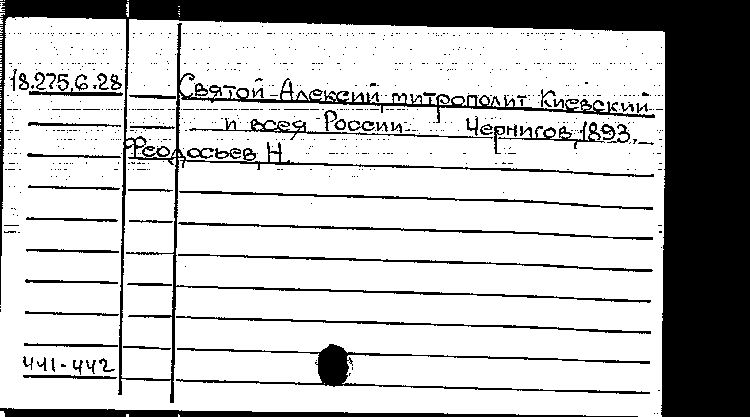 18.275.6.28 Святой Алексий, митрополит Киевский
и всея России Чернигов, 1893.
Феодосьев, Н.
441-442